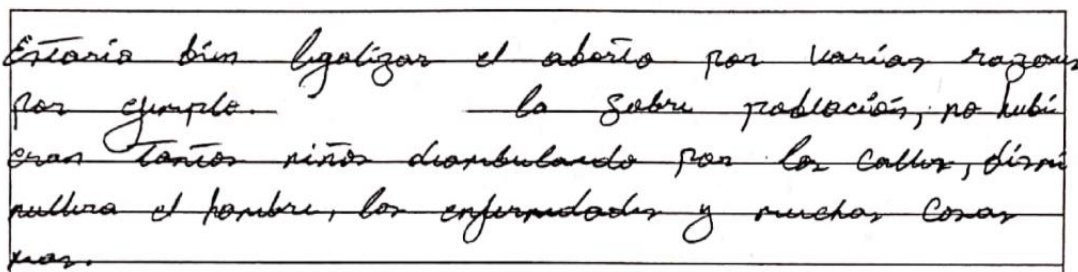 Estaria bien legalizar el aborto por varias razones
por ejemplo. la sobre población, no hubi
eran tantos niños diambulando por las calles, dismi
nullera el hambre, las enfermedades y muchas cosas
mas.